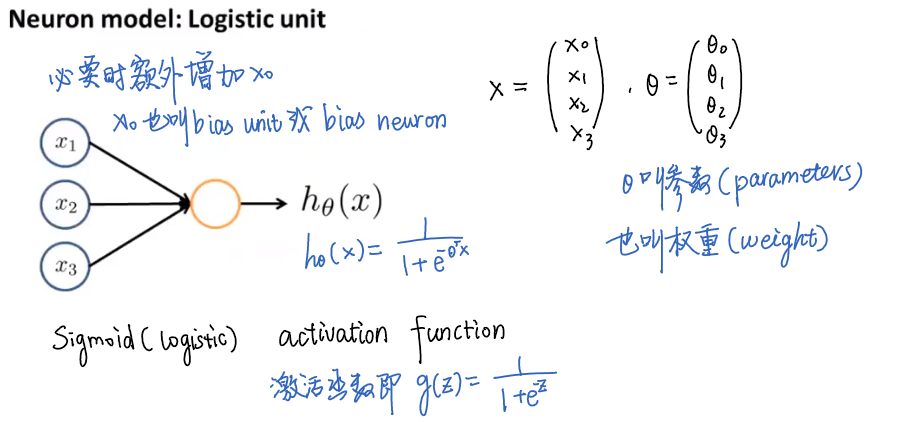 Neuron model: Logistic unit
必要时额外增加 x₀
x₀ 也叫 bias unit 或 bias neuron
x₁
x₂
x₃
h_θ(x)
h_θ(x) = 1 / (1 + e^(-θᵀx))
x = (x₀ x₁ x₂ x₃), θ = (θ₀ θ₁ θ₂ θ₃)
θ 叫参数 (parameters)
也叫权重 (weight)
Sigmoid (logistic) activation function
激活函数即 g(z) = 1 / (1 + e^(-z))